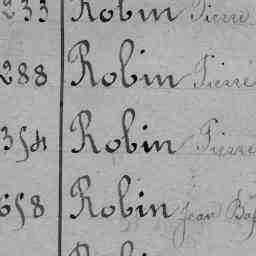 233 Robin Pierre
288 Robin Pierre
354 Robin Pierre
658 Robin Jean Bap
Robin